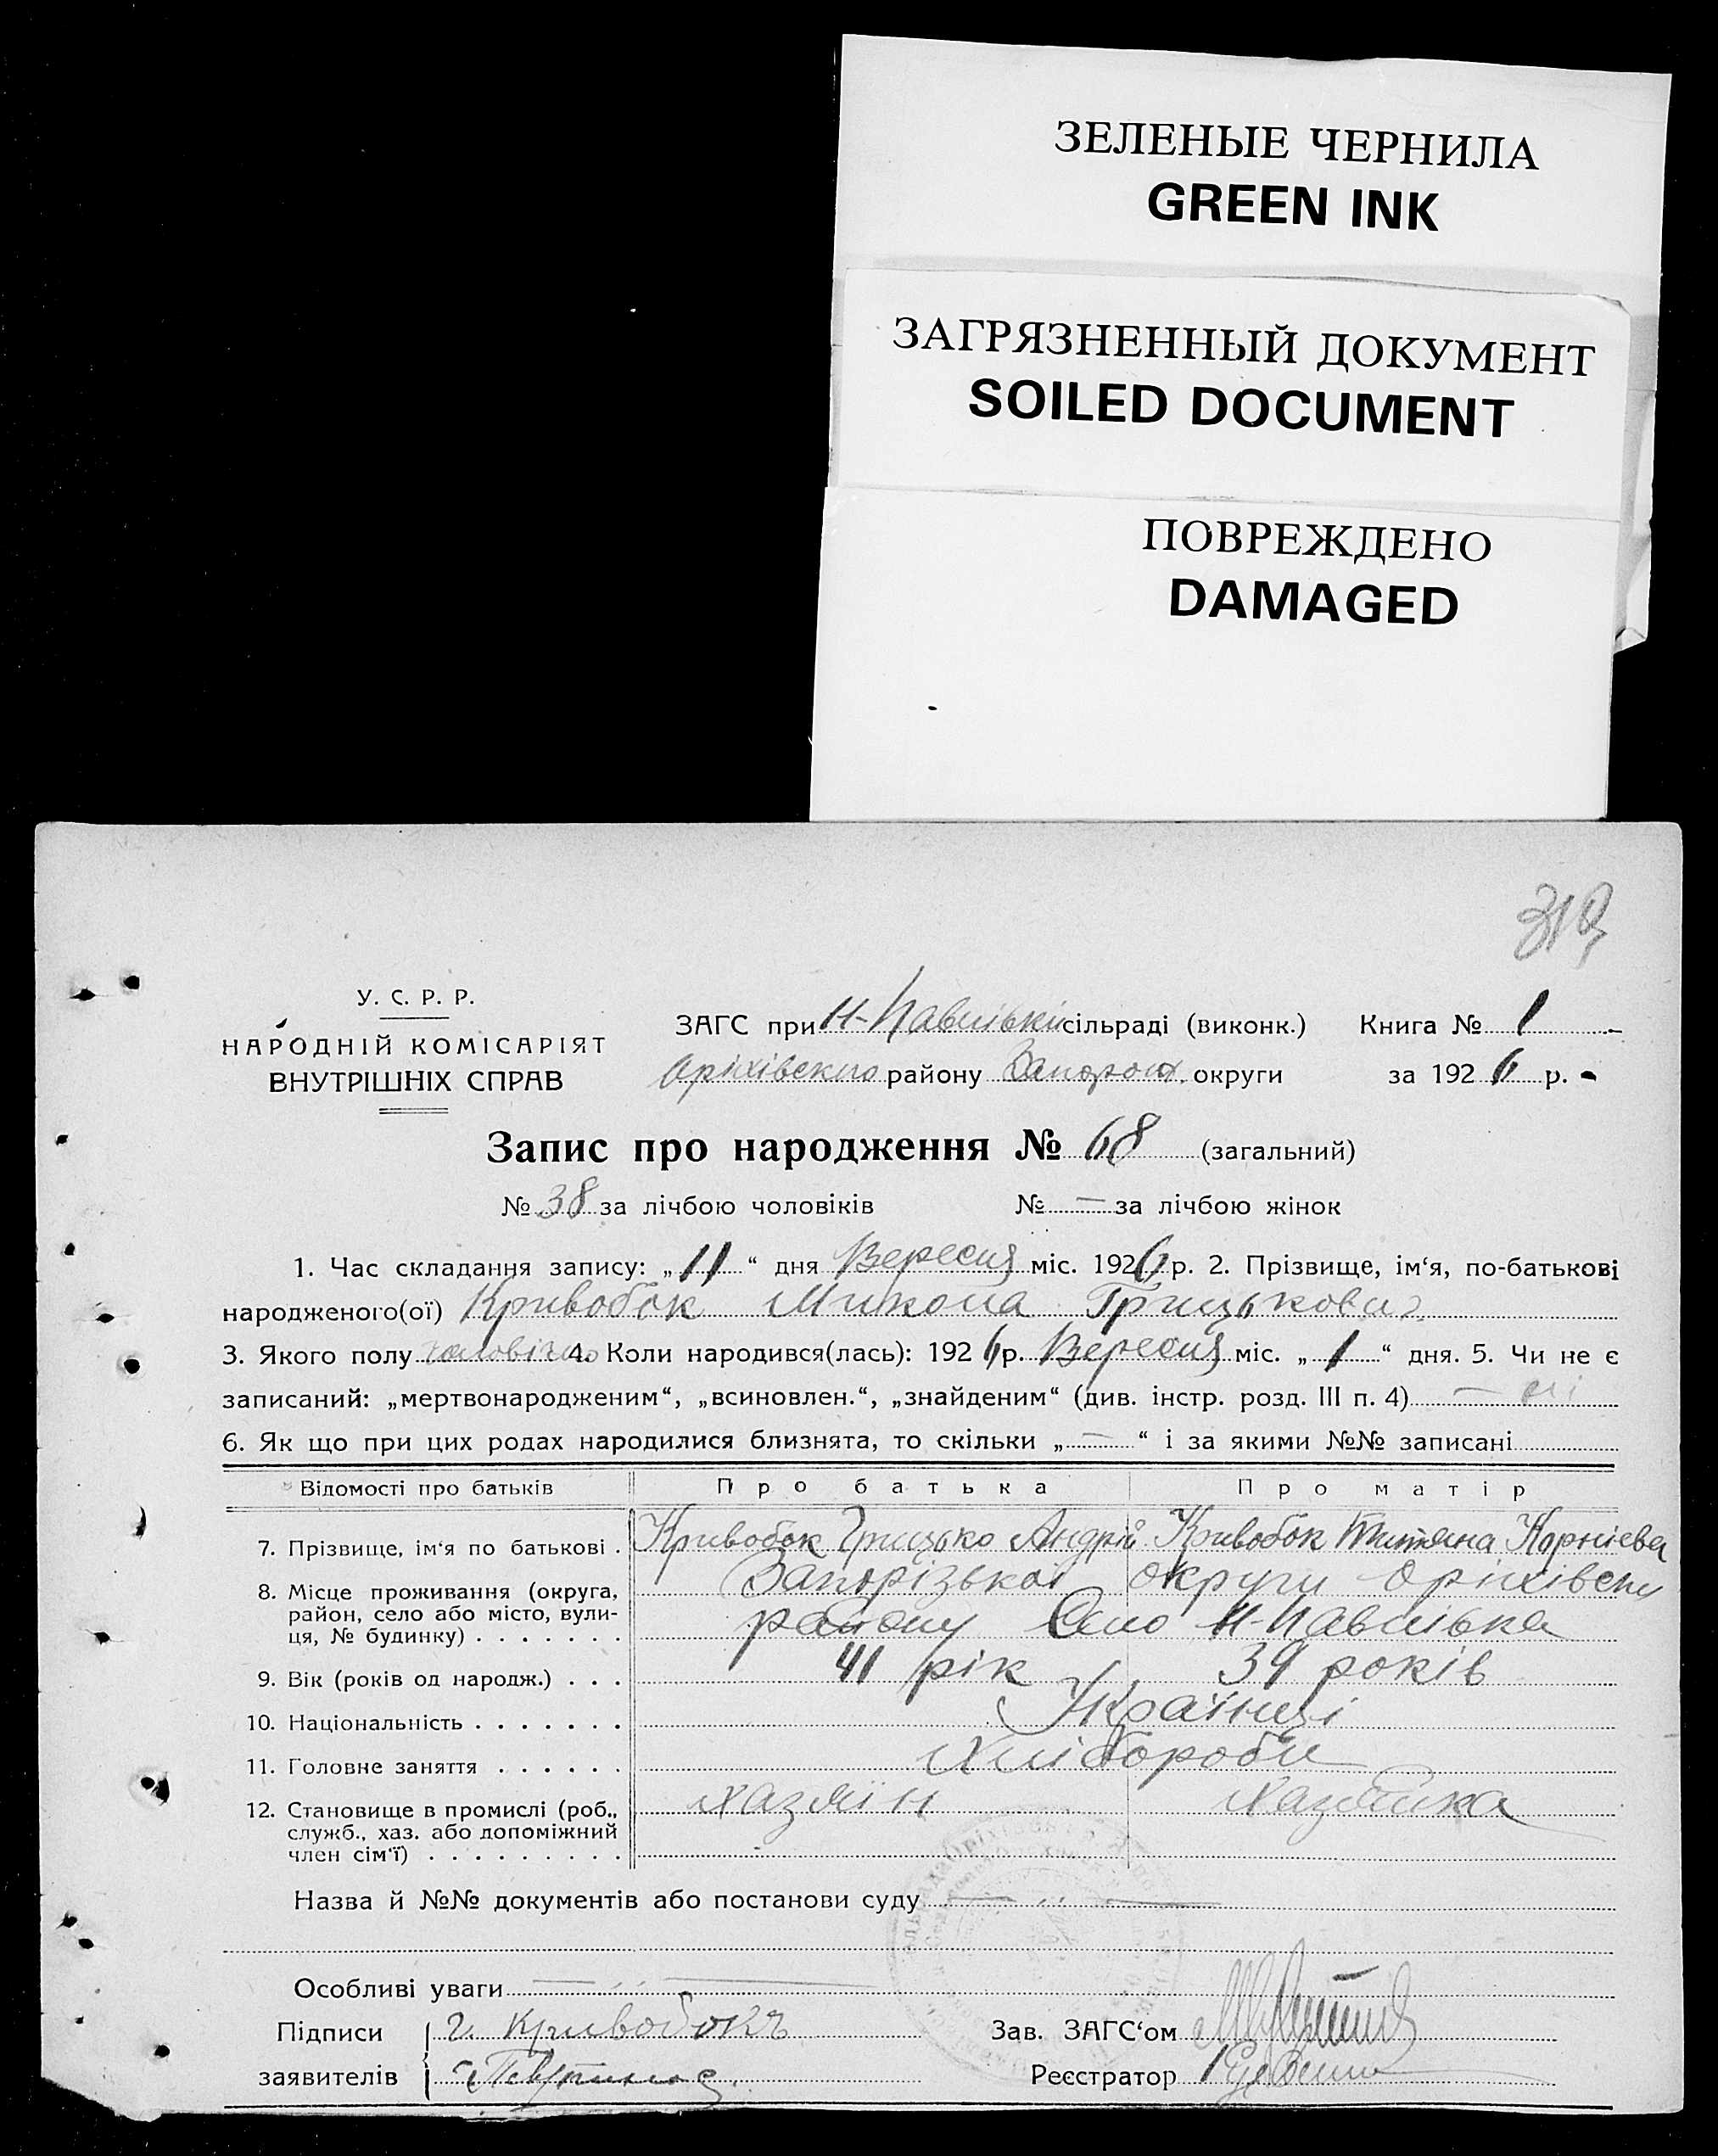 ЗЕЛЕНЫЕ ЧЕРНИЛА
GREEN INK
ЗАГРЯЗНЕННЫЙ ДОКУМЕНТ
SOILED DOCUMENT
ПОВРЕЖДЕНО
DAMAGED
У. С. Р. Р.
НАРОДНІЙ КОМІСАРІЯТ
ВНУТРІШНІХ СПРАВ
ЗАГС при Н-Павлівкій сільраді (виконк.) Книга № 1
Оріхівского району Запорож. округи за 1926 р.
Запис про народження № 68 (загальний)
№ 38 за лічбою чоловіків № — за лічбою жінок
1. Час складання запису: „11“ дня Вересня міс. 1926 р. 2. Прізвище, ім‘я, по-батькові
народженого(ої) Кривобок Микола Грицькович
3. Якого полу чоловічого 4. Коли народився(лась): 1926 р. Вересня міс. „1“ дня. 5. Чи не є
записаний: „мертвонародженим“, „всиновлен.“, „знайденим“ (див. інстр. розд. III п. 4) — ні
6. Як що при цих родах народилися близнята, то скільки „—“ і за якими №№ записані
Відомості про батьків Про батька Про матір
7. Прізвище, ім‘я по батькові . Кривобок Грицько Андрій Кривобок Титяна Корніева
8. Місце проживання (округа, Запорізькоі округи Оріхівского
район, село або місто, вули-
ця, № будинку) . . . . . . . району Село Н-Павлівка
9. Вік (років од народж.) . . . 41 рік 39 років
10. Національність . . . . . . . Українці
11. Головне заняття . . . . . . Хлібороби
12. Становище в промислі (роб., хазяїн Хазяйка
служб., хаз. або допоміжний
член сім‘ї) . . . . . . . . .
Назва й №№ документів або постанови суду — „ —
Особливі уваги — „ —
Підписи Г. Кривобокъ Зав. ЗАГС‘ом
заявителів Реєстратор